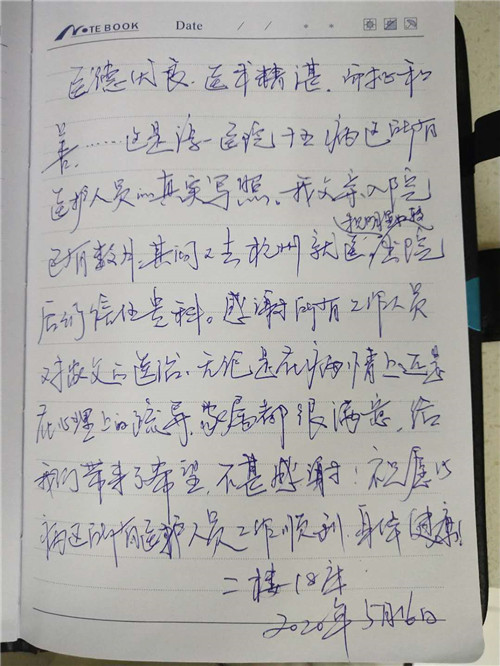 NOTE BOOK Date / /
医德优良、医术精湛、
善……这是滨一医院十五病区所有
医护人员的真实写照。我父亲入院
已有数月,其间又去杭州就医,出院
后仍信任贵科。感谢所有工作人员
对家父的医治,无论是在病情上还是
在心理上的疏导,家属都很满意,给
我们带来了希望,不甚感谢!祝愿
病区所有医护人员工作顺利,身体健康!
二楼18床
2020年5月16日